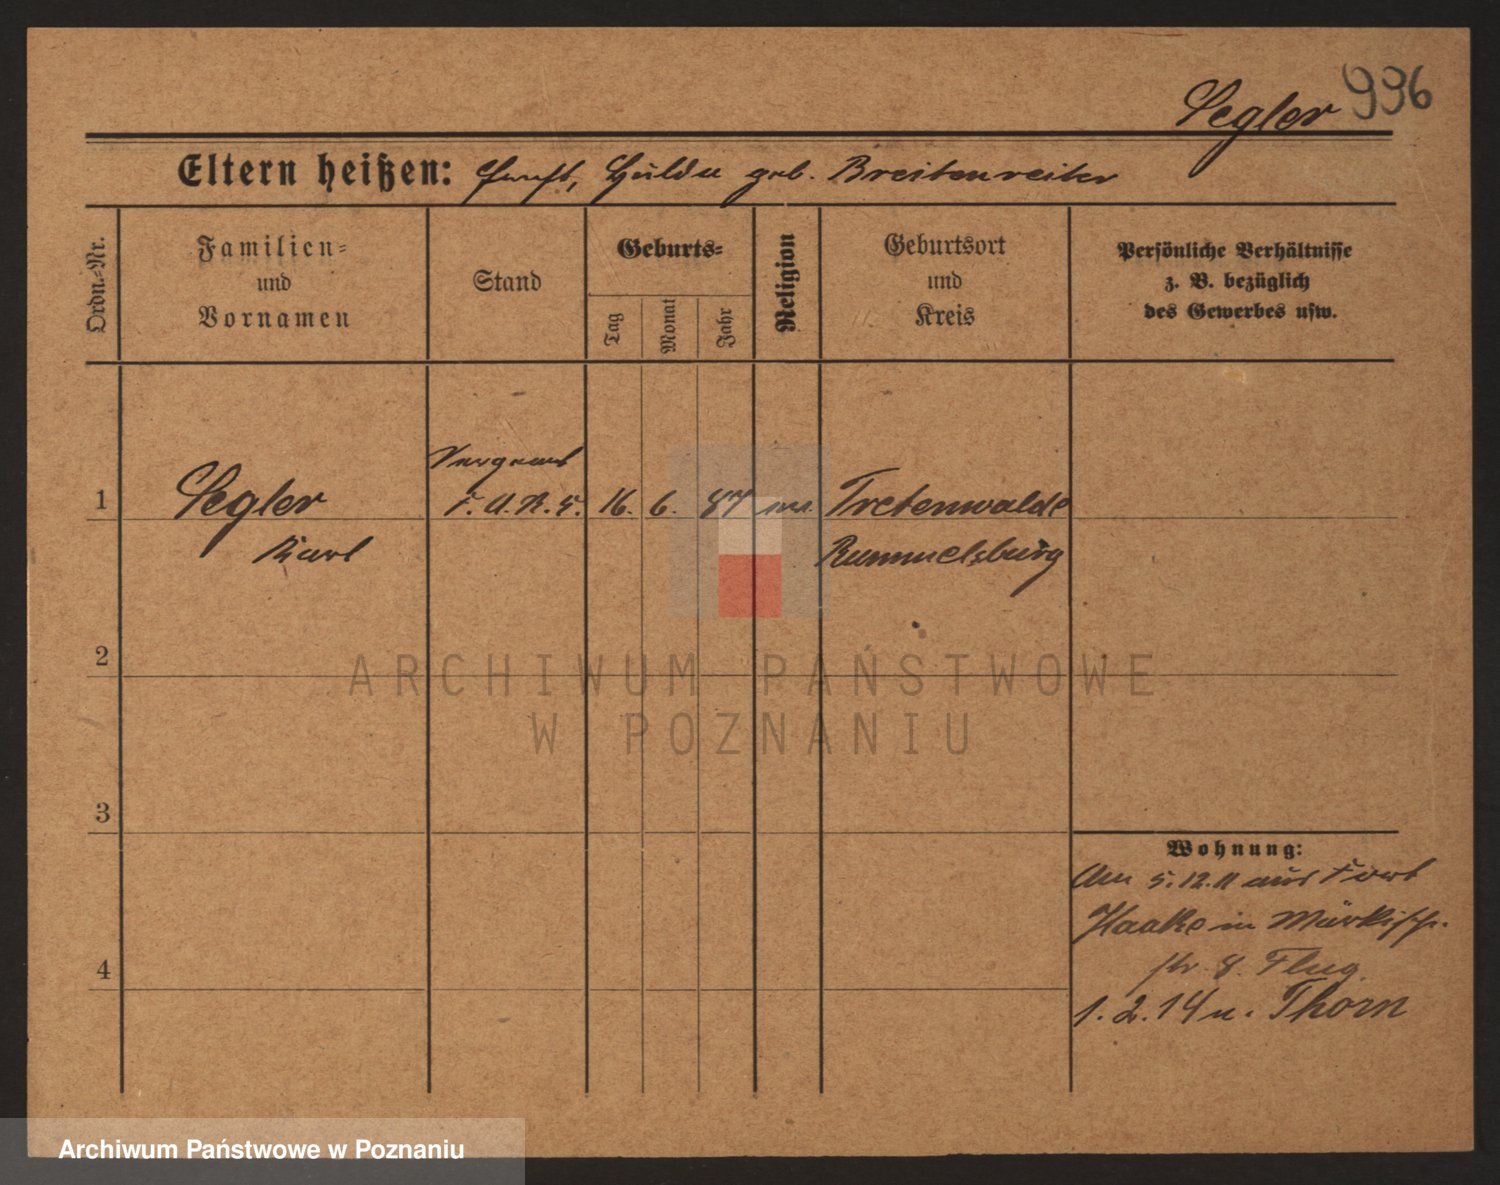 Segler 996
Eltern heißen: Hulda geb. Breitenreiter
Ordn.-Nr.
Familien-
und
Vornamen
Stand
Geburts-
Tag
Monat
Jahr
Religion
Geburtsort
und
Kreis
Persönliche Verhältnisse
z. B. bezüglich
des Gewerbes usw.
1 Segler F. A. R. 5. 16. 6. 87 Tretenwalde
Karl Rummelsburg
2
ARCHIWUM PAŃSTWOWE
W POZNANIU
3
Wohnung:
Am 5.12.11 aus Fort
Haake in Märkisch.
str. 8. Flug.
4
1.2.14 n. Thorn
Archiwum Państwowe w Poznaniu